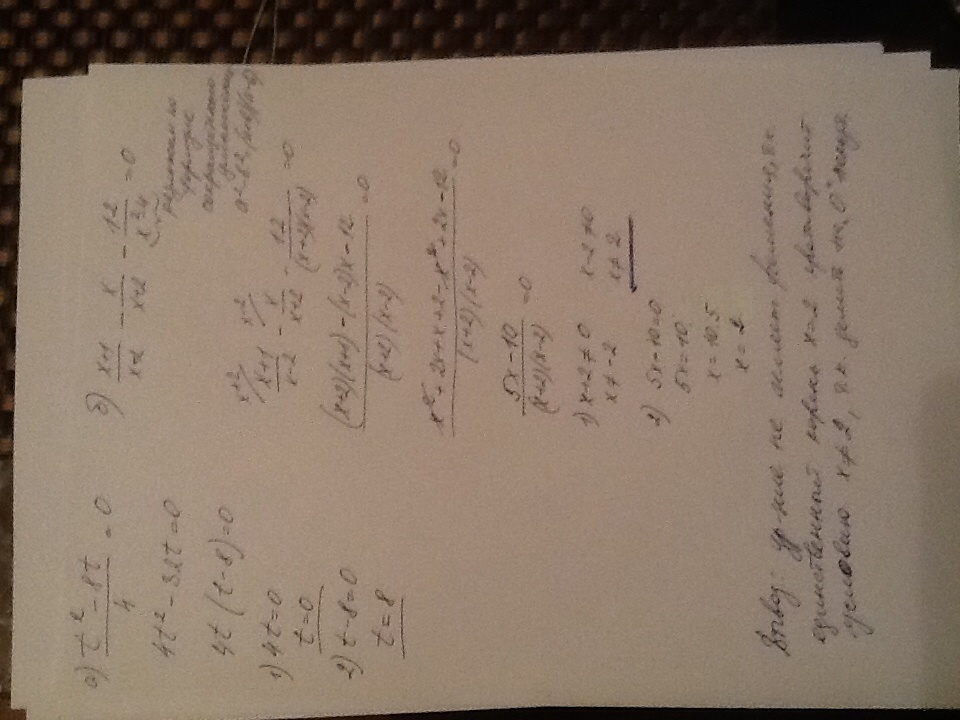 а) t² - 8t / 4 = 0
4t² - 32t = 0
4t (t - 8) = 0
1) 4t = 0
t = 0
2) t - 8 = 0
t = 8
б) x+1 / x-2 - x / x+2 - 12 / x²-4 = 0
разложим по
формуле
сокращённого
умножения
x+2/ x+1 / x-2 - x-2/ x / x+2 - 12 / (x+2)(x-2) = 0
(x+2)(x+1) - (x-2)x - 12 / (x+2)(x-2) = 0
x² + 2x + x + 2 - x² + 2x - 12 / (x+2)(x-2) = 0
5x - 10 / (x+2)(x-2) = 0
1) x+2 ≠ 0 x-2 ≠ 0
x ≠ -2 x ≠ 2
2) 5x - 10 = 0
5x = 10
x = 10:5
x = 2
Вывод: ур-ние не имеет решения, т.к.
единственный корень x = 2 противоречит
условию x ≠ 2, т.к. делить на „0" нельзя.